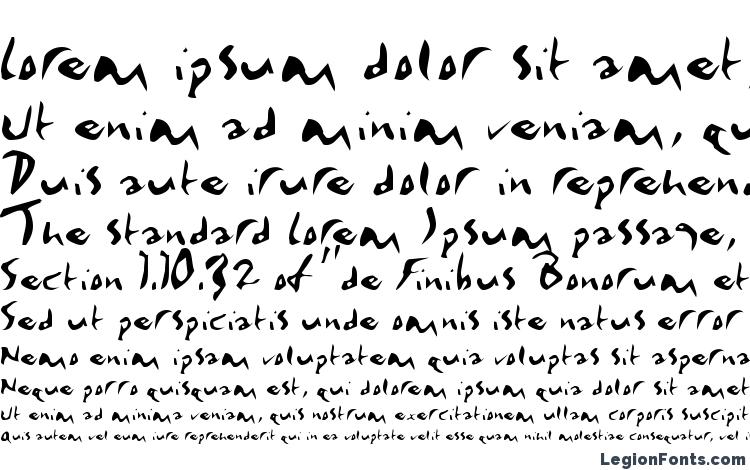 lorem ipsum dolor sit amet,
Ut enim ad minim veniam, qu
Duis aute irure dolor in reprehen
The standard lorem Ipsum passage,
Section 1.10.32 of "de Finibus Bonorum et
Sed ut perspiciatis unde omnis iste natus error
Nemo enim ipsam voluptatem quia voluptas sit asperna
Neque porro quisquam est, qui dolorem ipsum quia dolor sit amet
Ut enim ad minima veniam, quis nostrum exercitationem ullam corporis suscipit
Quis autem vel eum iure reprehenderit qui in ea voluptate velit esse quam nihil molestiae consequatur, vel i
LegionFonts.com